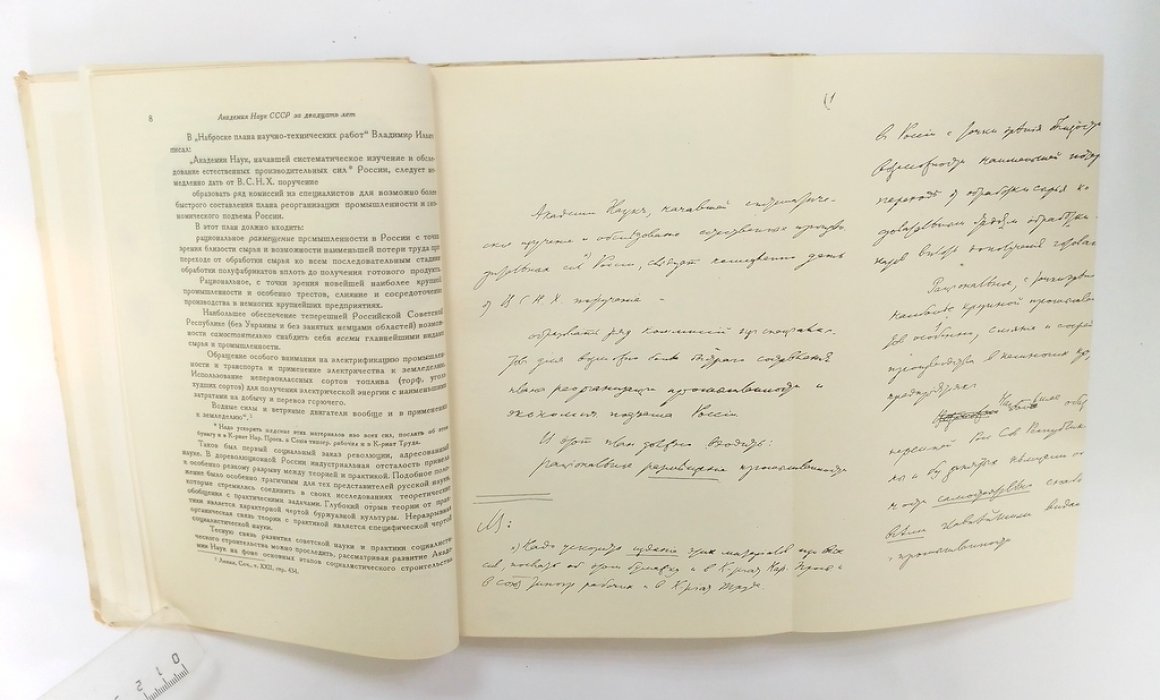 8
Академия Наук СССР за двадцать лет
В „Наброске плана научно-технических работ“ Владимир Ильич
писал:
„Академии Наук, начавшей систематическое изучение и обсле-
дование естественных производительных сил* России, следует не-
медленно дать от В.С.Н.Х. поручение
образовать ряд комиссий из специалистов для возможно более
быстрого составления плана реорганизации промышленности и эко-
номического подъема России.
В этот план должно входить:
рациональное размещение промышленности в России с точки
зрения близости сырья и возможности наименьшей потери труда при
переходе от обработки сырья ко всем последовательным стадиям
обработки полуфабрикатов вплоть до получения готового продукта.
Рациональное, с точки зрения новейшей наиболее крупной
промышленности и особенно трестов, слияние и сосредоточение
производства в немногих крупнейших предприятиях.
Наибольшее обеспечение теперешней Российской Советской
Республике (без Украины и без занятых немцами областей) возмож-
ности самостоятельно снабдить себя всеми главнейшими видами
сырья и промышленности.
Обращение особого внимания на электрификацию промышлен-
ности и транспорта и применение электричества к земледелию.
Использование непервоклассных сортов топлива (торф, уголь
худших сортов) для получения электрической энергии с наименьшими
затратами на добычу и перевоз горючего.
Водные силы и ветряные двигатели вообще и в применении
к земледелию“.¹
* Надо ускорить издание этих материалов изо всех сил, послать об этом
бумагу и в К-риат Нар. Прос. в Союз типогр. рабочих и в К-риат Труда.
Таков был первый социальный заказ революции, адресованный
науке. В дореволюционной России индустриальная отсталость привела
к особенно резкому разрыву между теорией и практикой. Подобное поло-
жение было особенно трагичным для тех представителей русской науки,
которые стремились соединить в своих исследованиях теоретические
обобщения с практическими задачами. Глубокий отрыв теории от прак-
тики является характерной чертой буржуазной культуры. Неразрывная
органическая связь теории с практикой является специфической чертой
социалистической науки.
Тесную связь развития советской науки и практики социалисти-
ческого строительства можно проследить, рассматривая развитие Акаде-
мии Наук на фоне основных этапов социалистического строительства
¹ Ленин. Соч., т. XXII, стр. 434.
Академии Наук, начавшей систематиче-
ское изучение и обследование естественных произво-
дительных сил*) России, следует немедленно дать
от В.С.Н.Х. поручение
образовать ряд комиссий из специалис-
тов для возможно более быстрого составления
плана реорганизации промышленности и
экономич. подъема России
В этот план должно входить:
рациональное размещение промышленности
М:
*) Надо ускорить издание этих материалов изо всех
сил, послать об этом бумажку и в К-риат Нар. Просв. и
в союз типогр. рабочих и в К-риат Труда.
в России с точки зрения близости
возможности наименьшей потери
переходе от обработки сырья ко
Рациональное, с точки зрения
наиболее крупной промышлен
особенно, слияние и сосред
производства в немногих кр
предприятиях
самостоятельно
промышленности
0 1 2